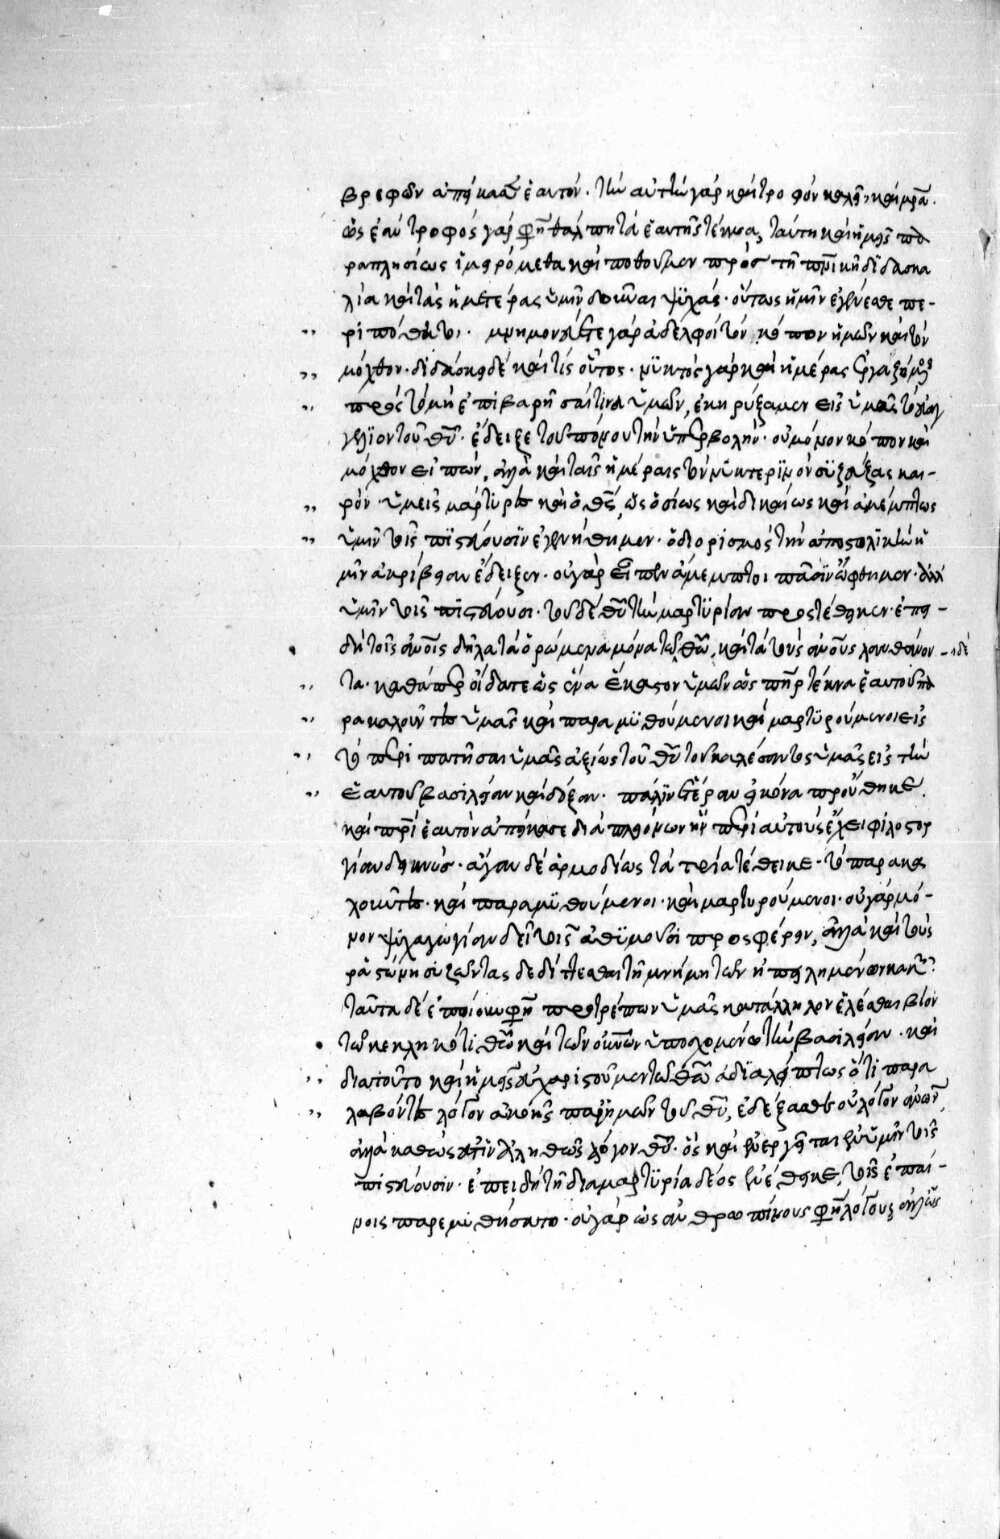 βρεφῶν ἀπήκασεν ἑαυτόν. τὴν αὐτὴν γὰρ καὶ τροφὸν καλεῖ, καὶ μρα.
ὡς ἐὰν τροφὸς γάρ φησι θάλπῃ τὰ ἑαυτῆς τέκνα, ταύτῃ καὶ ἡμεῖς πα
ραπλησίως ἱμειρόμεθα καὶ ποθοῦμεν πρὸς τῇ πνικῇ διδασκα
λία καὶ τὰς ἡμετέρας ὑμῖν δοῦναι ψυχάς. οὕτως ἡμῖν ἐγένεσθε πε-
ριπόθητοι. μνημονεύετε γὰρ ἀδελφοὶ τὸν κόπον ἡμῶν καὶ τὸν
μόχθον. διδάσκει δὲ καὶ τίς οὗτος. νυκτὸς γὰρ καὶ ἡμέρας ἐργαζόμενοι
πρὸς τὸ μὴ ἐπιβαρῆσαί τινα ὑμῶν, ἐκηρύξαμεν εἰς ὑμᾶς τὸ εὐαγ
γέλιον τοῦ θυ. ἔδειξε τοῦ πόνου τὴν ὑπερβολήν. οὐ μόνον κόπον καὶ
μόχθον εἰπών, ἀλλὰ καὶ ταῖς ἡμέραις τὸν νυκτερινὸν συζεύξας και-
ρόν. ὑμεῖς μάρτυρες καὶ ὁ θς, ὡς ὁσίως καὶ δικαίως καὶ ἀμέμπτως
ὑμῖν τοῖς πιστεύουσιν ἐγενήθημεν. ὁ διορισμὸς τὴν ἀποστολικὴν ἡ
μῖν ἀκρίβειαν ἔδειξεν. οὐ γὰρ εἶπεν ἄμεμπτοι πᾶσιν ὤφθημεν. ἀλλ
ὑμῖν τοῖς πιστεύουσι. τοῦ δὲ θυ τὴν μαρτυρίαν προστέθεικεν. ἐπει-
δὴ τοῖς ανοις δῆλα τὰ ὁρώμενα μόνα τῷ θω, καὶ τὰ τοὺς ανους λανθάνον- δὲ
τα. καθάπερ οἴδατε ὡς ἕνα ἕκαστον ὑμῶν ὡς πηρ τέκνα ἑαυτοῦ πα
ρακαλοῦντες ὑμᾶς καὶ παραμυθούμενοι καὶ μαρτυρούμενοι εἰς
τὸ περιπατῆσαι ὑμᾶς ἀξίως τοῦ θυ τοῦ καλέσαντος ὑμᾶς εἰς τὴν
ἑαυτοῦ βασιλείαν καὶ δόξαν. πάλιν ἑτέραν εἰκόνα προὔθηκε.
καὶ πρι ἑαυτὸν ἀπήκασε διὰ πλειόνων ἣν περὶ αὐτοὺς ἔχει φιλοστορ
γίαν δεικνύς. ἄγαν δὲ ἁρμοδίως τὰ τρία τέθεικε. τὸ παρακα
λοῦντες. καὶ παραμυθούμενοι. καὶ μαρτυρούμενοι. οὐ γὰρ μό-
νον ψυχαγωγίαν δεῖ τοῖς ἀθυμοῦσι προσφέρειν, ἀλλὰ καὶ τοὺς
ῥαστώνῃ συζῶντας δεδίττεσθαι τῇ μνήμῃ τῶν ἠπειλημένων κακῶν.
ταῦτα δὲ ἐποίουν φησι προτρέπων ὑμᾶς κατάλληλον ἑλέσθαι βίον
τῷ κεκληκότι θω καὶ τῶν ουνων ὑποσχομένῳ τὴν βασιλείαν. καὶ
διατοῦτο καὶ ἡμεῖς εὐχαριστοῦμεν τῷ θω ἀδιαλείπτως ὅτι παρα
λαβόντες λόγον ἀκοῆς παρ' ἡμῶν τοῦ θυ, ἐδέξασθε οὐ λόγον ανων,
ἀλλὰ καθώς ἐστιν ἀληθῶς λόγον θυ. ὃς καὶ ἐνεργεῖται ἐν ὑμῖν τοῖς
πιστεύουσιν. ἐπειδὴ τῇ διαμαρτυρία δέος ἐνέθηκε, τοῖς ἐπαί-
νοις παρεμυθήσατο. οὐ γὰρ ὡς ανθρωπίνους φησι λόγους ἁπλῶς